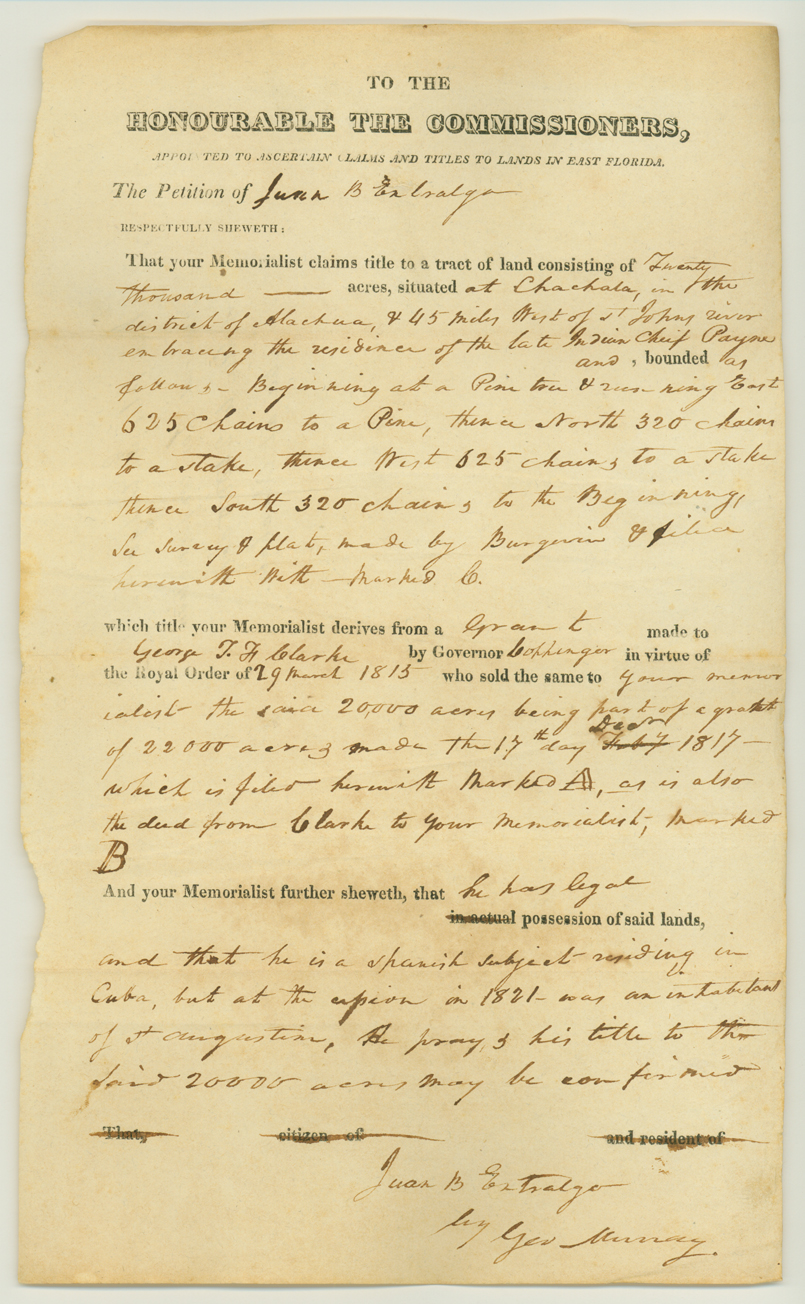 TO THE
HONOURABLE THE COMMISSIONERS,
APPOINTED TO ASCERTAIN CLAIMS AND TITLES TO LANDS IN EAST FLORIDA.
The Petition of Juan B Entralgo
RESPECTFULLY SHEWETH:
That your Memorialist claims title to a tract of land consisting of Twenty
thousand — acres, situated at Chachala, in the
district of Alachua, & 45 miles West of St Johns river
embracing the residence of the late Indian Chief Payne
and , bounded as
follows - Beginning at a Pine tree & running East
625 Chains to a Pine, thence North 320 chains
to a stake, thence West 625 chains to a stake
thence South 320 chains to the Beginning,
See survey & plat, made by Burgevin & filed
herewith With - Marked C.
which title your Memorialist derives from a Grant made to
George I. F Clarke by Governor Coppinger in virtue of
the Royal Order of 29 March 1815 who sold the same to your memor
ialist the said 20,000 acres being part of a grant
of 22000 acres made the 17th day Feby Decr 1817 -
which is filed herewith Marked A, as is also
the deed from Clarke to your Memorialist, Marked
B
And your Memorialist further sheweth, that he has legal
in actual possession of said lands,
and that he is a spanish subject residing in
Cuba, but at the cession in 1821 - was an inhabitant
of St Augustine, He prays his title to the
said 20000 acres may be confirmed
That, citizen of and resident of
Juan B Entralgo
by Geo Murray.